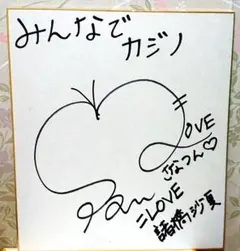 みんなで
カジノ
=LOVE
さなつん♡
=LOVE
諸橋沙夏